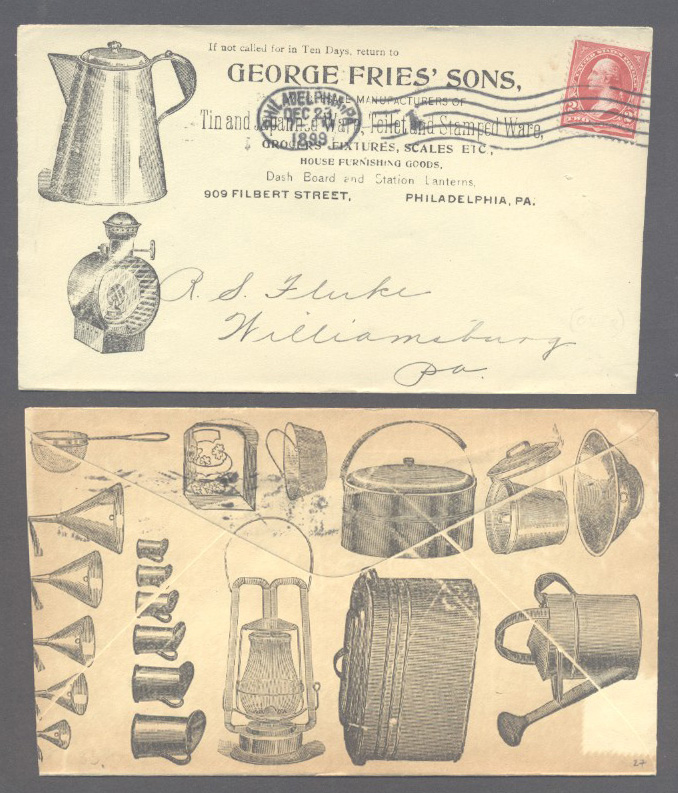 If not called for in Ten Days, return to
GEORGE FRIES' SONS,
MANUFACTURERS OF
Tin and Japanned Ware, Toilet and Stamped Ware,
GROCERS' FIXTURES, SCALES ETC,
HOUSE FURNISHING GOODS,
Dash Board and Station Lanterns,
909 FILBERT STREET, PHILADELPHIA, PA.
PHILADELPHIA, PA.
DEC 23
1899
R. S. Fluke
Williamsburg
Pa.
27